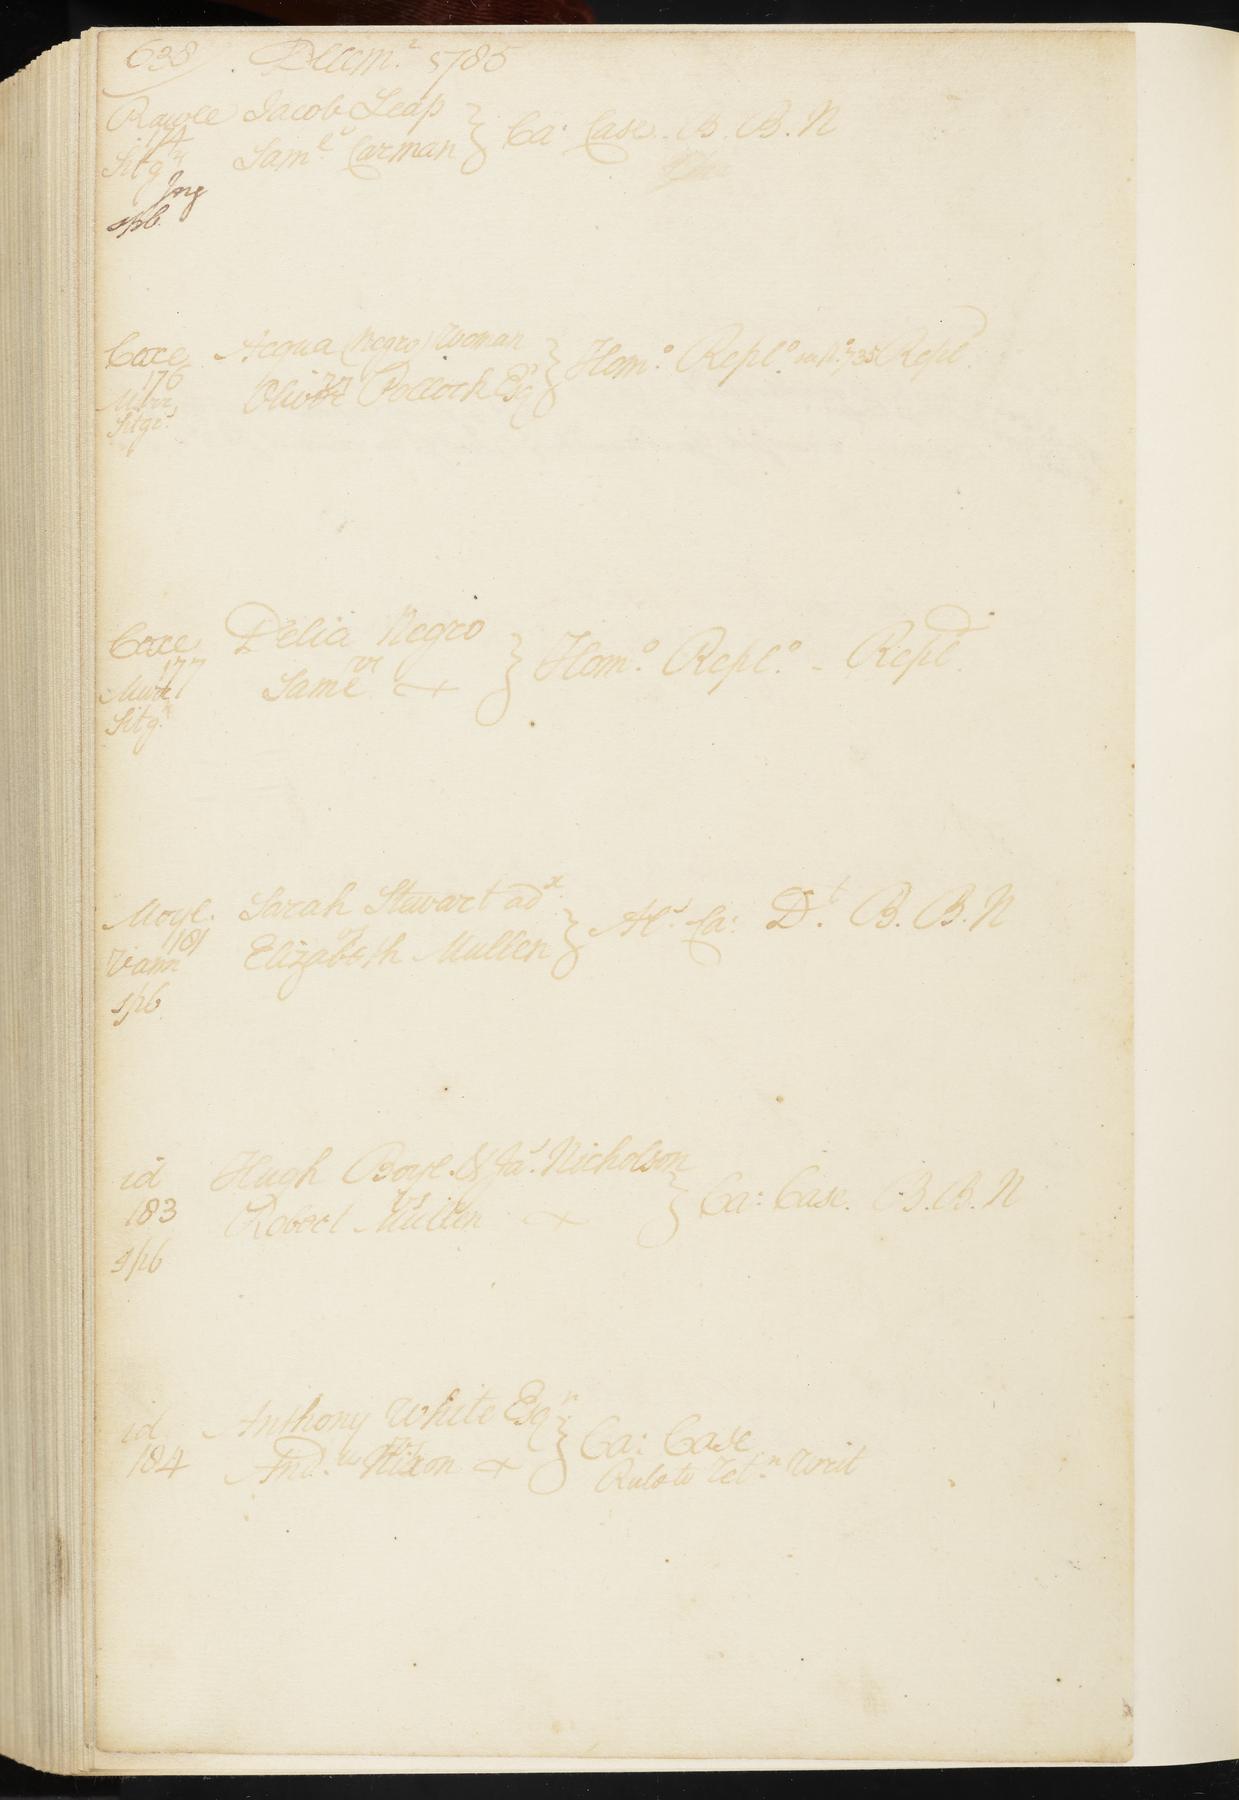 638 Decem.r 1785
Rawle Jacob Leap } Ca: Case. B. B. N
174 vs
Sitg.s Sam.l Carman
Ing
spb.
Coxe Acqua (Negro) Woman } Hom.o Repl.o Repl.d
176 vs
Sitgs. Oliver Pollock Esq.r
Coxe Delia Negro } Hom.o Repl.o - Repl.d
177 vs
Sitg.s Same
Moyl. Sarah Stewart ad.x } Al.s Ca: D.t B. B. N
181 vs
Vann Elizabeth Mullen
spb.
id Hugh Boyl. & Ja.s Nicholson } Ca: Case. B. B. N
183 vs
Robert Mullen +
spb
id Anthony White Esq.r } Ca: Case
184 vs
And.w Nixon + Rule to Ret.n Writ